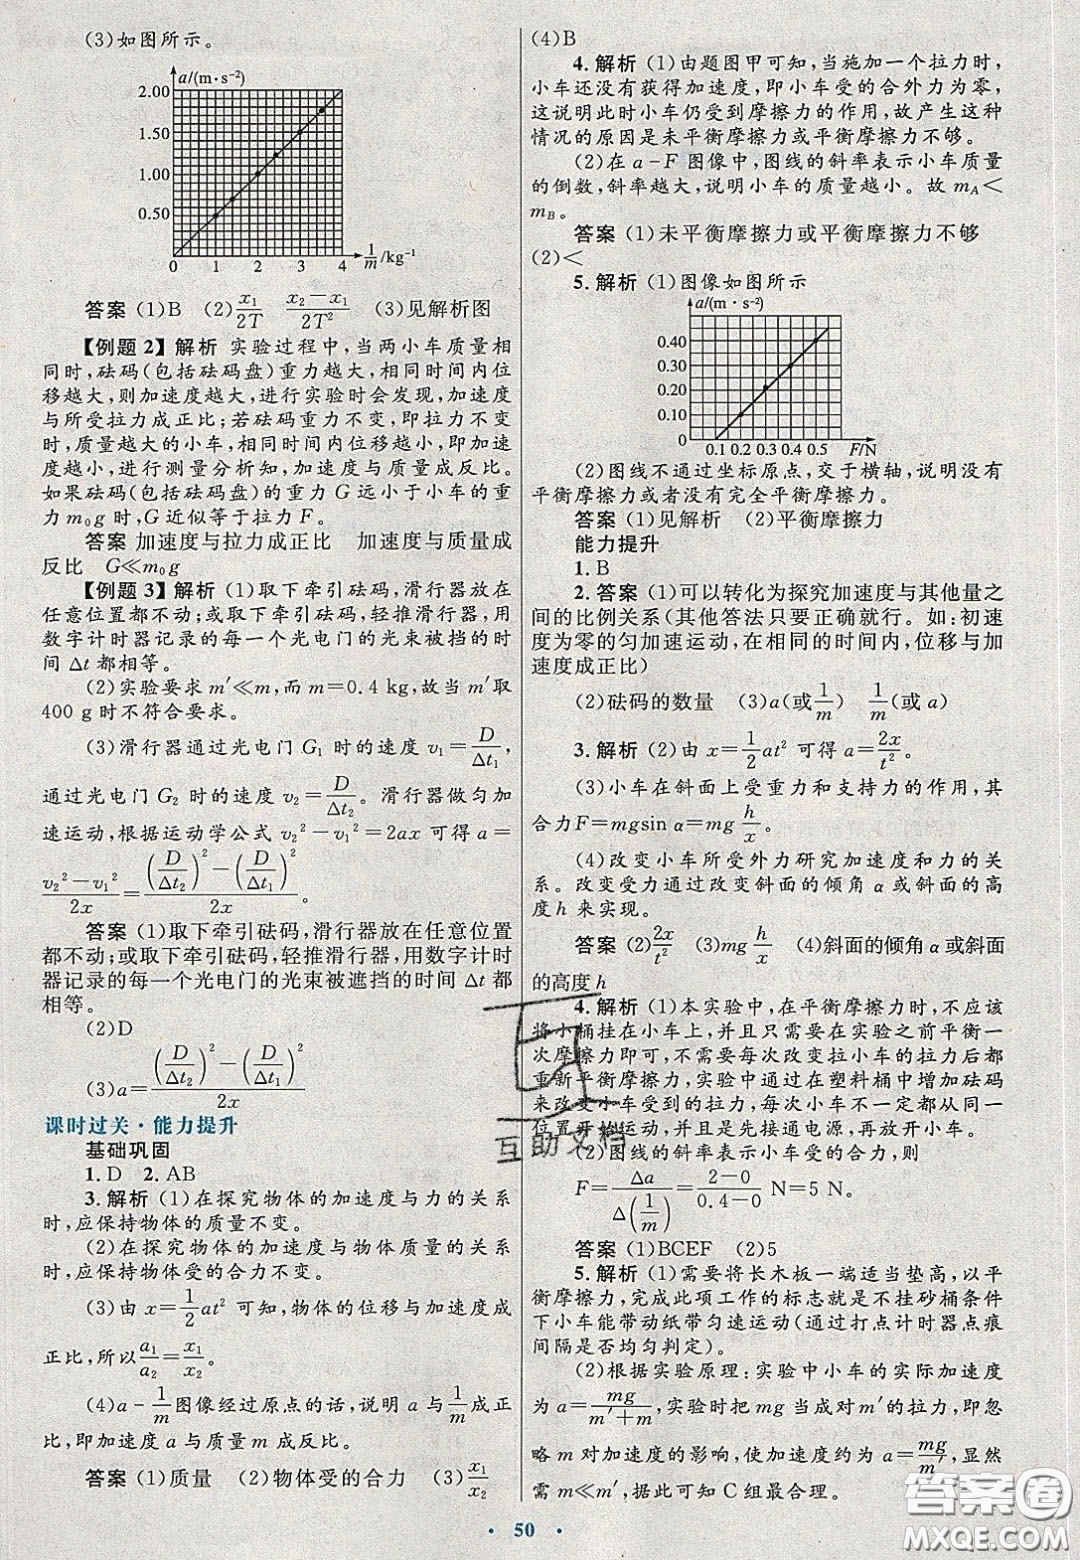 (3)如图所示。
a/(m·s⁻²)
2.00
1.50
1.00
0.50
0 1 2 3 4 1/m /kg⁻¹
答案 (1)B (2)x₁/2T (x₂−x₁)/2T² (3)见解析图
【例题2】解析 实验过程中,当两小车质量相
同时,砝码(包括砝码盘)重力越大,相同时间内位
移越大,则加速度越大,进行实验时会发现,加速度
与所受拉力成正比;若砝码重力不变,即拉力不变
时,质量越大的小车,相同时间内位移越小,即加速
度越小,进行测量分析知,加速度与质量成反比。
如果砝码(包括砝码盘)的重力 G 远小于小车的重
力 m₀g 时,G 近似等于拉力 F。
答案 加速度与拉力成正比 加速度与质量成
反比 G≪m₀g
【例题3】解析 (1)取下牵引砝码,滑行器放在
任意位置都不动;或取下牵引砝码,轻推滑行器,用
数字计时器记录的每一个光电门的光束被挡的时
间 Δt 都相等。
(2)实验要求 m′≪m,而 m=0.4 kg,故当 m′取
400 g 时不符合要求。
(3)滑行器通过光电门 G₁ 时的速度 v₁=D/Δt₁,
通过光电门 G₂ 时的速度 v₂=D/Δt₂。滑行器做匀加
速运动,根据运动学公式 v₂²−v₁²=2ax 可得 a=
(v₂²−v₁²)/2x=((D/Δt₂)²−(D/Δt₁)²)/2x。
答案 (1)取下牵引砝码,滑行器放在任意位置
都不动;或取下牵引砝码,轻推滑行器,用数字计时
器记录的每一个光电门的光束被遮挡的时间 Δt 都
相等。
(2)D
(3)a=((D/Δt₂)²−(D/Δt₁)²)/2x
课时过关·能力提升
基础巩固
1. D 2. AB
3. 解析 (1)在探究物体的加速度与力的关系
时,应保持物体的质量不变。
(2)在探究物体的加速度与物体质量的关系
时,应保持物体受的合力不变。
(3)由 x=1/2 at² 可知,物体的位移与加速度成
正比,所以 a₁/a₂=x₁/x₂。
(4)a−1/m图像经过原点的话,说明 a 与1/m成正
比,即加速度 a 与质量 m 成反比。
答案 (1)质量 (2)物体受的合力 (3)x₁/x₂
(4)B
4. 解析 (1)由题图甲可知,当施加一个拉力时,
小车还没有获得加速度,即小车受的合外力为零,
这说明此时小车仍受到摩擦力的作用,故产生这种
情况的原因是未平衡摩擦力或平衡摩擦力不够。
(2)在 a−F 图像中,图线的斜率表示小车质量
的倒数,斜率越大,说明小车的质量越小。故 m_A<
m_B。
答案 (1)未平衡摩擦力或平衡摩擦力不够
(2)<
5. 解析 (1)图像如图所示
a/(m·s⁻²)
0.40
0.30
0.20
0.10
0.1 0.2 0.3 0.4 0.5 F/N
(2)图线不通过坐标原点,交于横轴,说明没有
平衡摩擦力或者没有完全平衡摩擦力。
答案 (1)见解析 (2)平衡摩擦力
能力提升
1. B
2. 答案 (1)可以转化为探究加速度与其他量之
间的比例关系(其他答法只要正确就行。如:初速
度为零的匀加速运动,在相同的时间内,位移与加
速度成正比)
(2)砝码的数量 (3)a(或1/m) 1/m(或 a)
3. 解析 (2)由 x=1/2 at² 可得 a=2x/t²。
(3)小车在斜面上受重力和支持力的作用,其
合力F=mgsin α=mg h/x。
(4)改变小车所受外力研究加速度和力的关
系。改变受力通过改变斜面的倾角 α 或斜面的高
度 h 来实现。
答案 (2)2x/t² (3)mg h/x (4)斜面的倾角 α 或斜面
的高度 h
4. 解析 (1)本实验中,在平衡摩擦力时,不应该
将小桶挂在小车上,并且只需要在实验之前平衡一
次摩擦力即可,不需要每次改变拉小车的拉力后都
重新平衡摩擦力,实验中通过在塑料桶中增加砝码
来改变小车受到的拉力,小车不一定每次都从同一
位置开始运动,并且是先接通电源,再放开小车。
(2)图线的斜率表示小车受的合力,则
F=Δa/Δ(1/m)=(2.0−0)/(0.4−0) N=5 N。
答案 (1)BCEF (2)5
5. 解析 (1)需要将长木板一端适当垫高,以平
衡摩擦力,完成此项工作的标志就是不挂砂桶条件
下小车能带动纸带匀速运动(通过打点计时器点痕
间隔是否均匀判定)。
(2)根据实验原理:实验中小车的实际加速度
为 a=mg/(m′+m),实验时把 mg 当成对m′的拉力,即忽
略 m 对加速度的影响,使加速度约为 a=mg/m′,显然
需 m≪m′,据此可知 C 组最合理。
· 50 ·
互助文档
答案圈
MXQE.COM